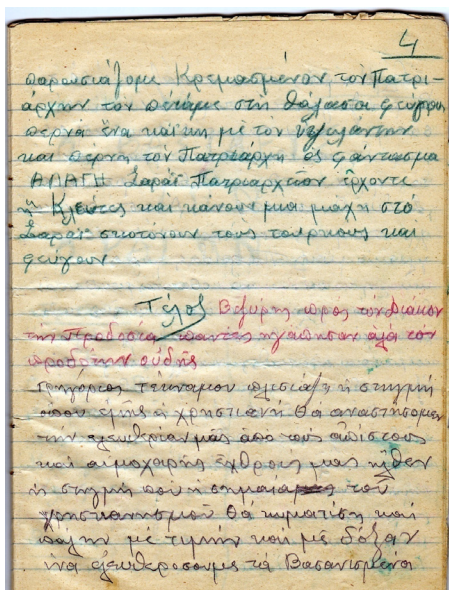 4
παρουσιάζομε Κρεμασμένον τον Πατρι-
άρχην τον πετάμε στη θάλασα φεύγομε
περνά ένα καΐκη με τον
και πέρνη τον Πατριάρχη ός φάντασμα
ΑΛΑΓΗ Σαράϊ Πατριαρχείον έρχοντε
ή Κλέφτες και κάνουν μια μαχη στό
Σαράϊ σκοτόνουν τους τούρκους και
φεύγουν
Τέλος Βεζύρης προς τον Διάκον
την Προδοσία πάντες ηγάπησαν αλά τον
προδότην ουδής
Γρηγόριος τέκναμου πλισιάζη ή στιγμή
οπου εμής η χρηστιανή θα αναστήσομεν
την ελευθερίαν μας από τους απίστους
και αιμοχαρής έχθρούς μας ήλθεν
ή στιγμή που ή σημαία του
χρηστιανησμού θα κυματίση και
πάλην με τιμήν και με δόξαν
ίνα ελευθεροσουμε τά Βασανισμένα